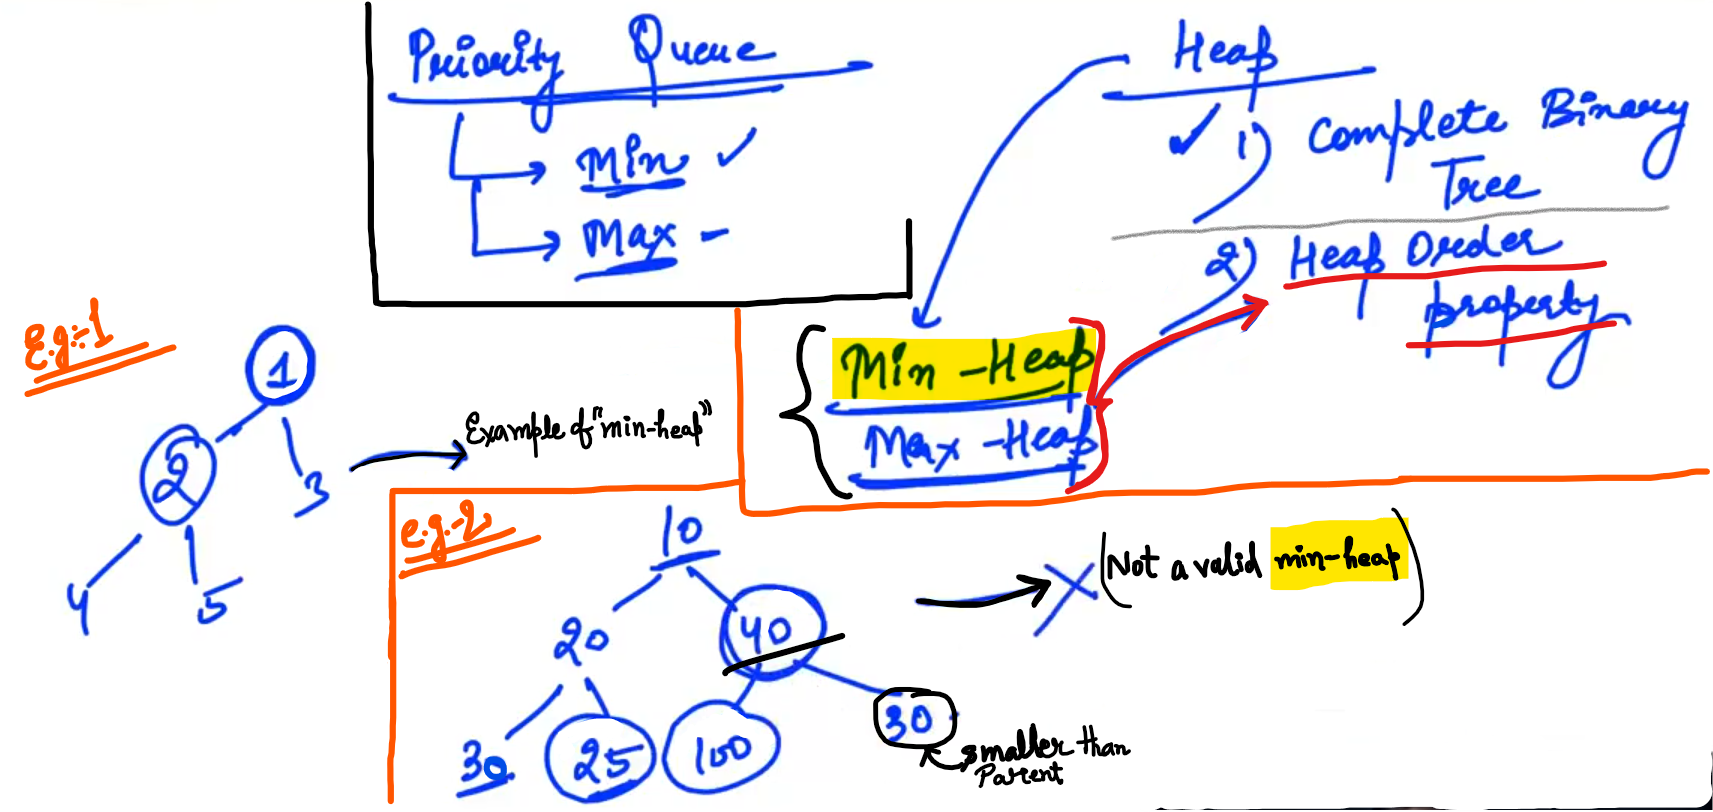 Priority Queue
Min
Max
Heap
1) Complete Binary
Tree
2) Heap Order
property
Min-Heap
Max-Heap
E.g:-1
1
2
3
4
5
Example of "min-heap"
e.g.-2
10
20
40
30
25
100
30
smaller than
Parent
(Not a valid min-heap)